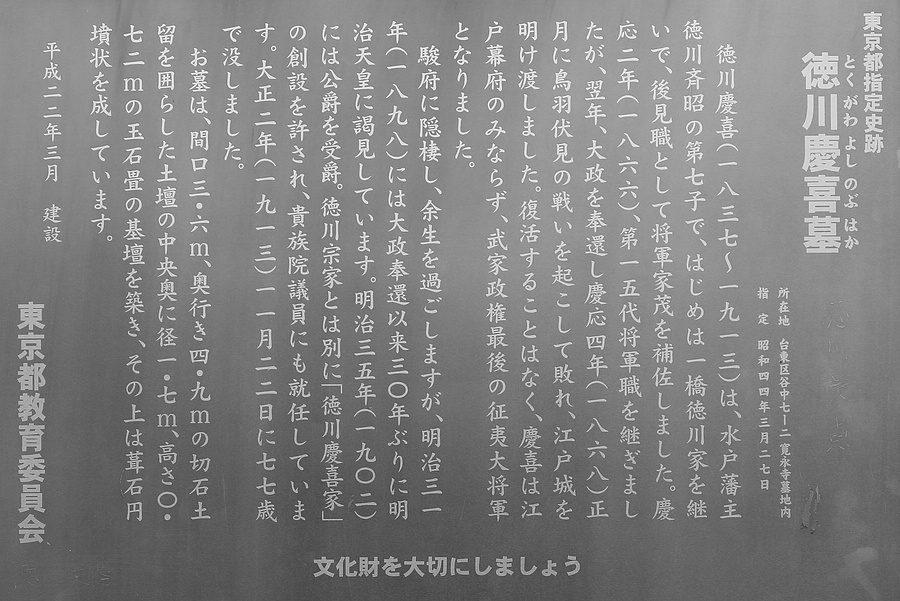 東京都指定史跡
徳川慶喜墓
とくがわよしのぶはか
所在地 台東区谷中七ー二 寛永寺墓地内
指定 昭和四四年三月二七日
徳川慶喜(一八三七〜一九一三)は、水戸藩主
徳川斉昭の第七子で、はじめは一橋徳川家を継
いで、後見職として将軍家茂を補佐しました。慶
応二年(一八六六)、第一五代将軍職を継ぎまし
たが、翌年、大政を奉還し慶応四年(一八六八)正
月に鳥羽伏見の戦いを起こして敗れ、江戸城を
明け渡しました。復活することはなく、慶喜は江
戸幕府のみならず、武家政権最後の征夷大将軍
となりました。
駿府に隠棲し、余生を過ごしますが、明治三一
年(一八九八)には大政奉還以来三〇年ぶりに明
治天皇に謁見しています。明治三五年(一九〇二)
には公爵を受爵。徳川宗家とは別に「徳川慶喜家」
の創設を許され、貴族院議員にも就任していま
す。大正二年(一九一三)一一月二二日に七七歳
で没しました。
お墓は、間口三・六m、奥行き四・九mの切石土
留を囲らした土壇の中央奥に径一・七m、高さ〇・
七二mの玉石畳の基壇を築き、その上は葺石円
墳状を成しています。
平成二二年三月 建設
東京都教育委員会
文化財を大切にしましょう